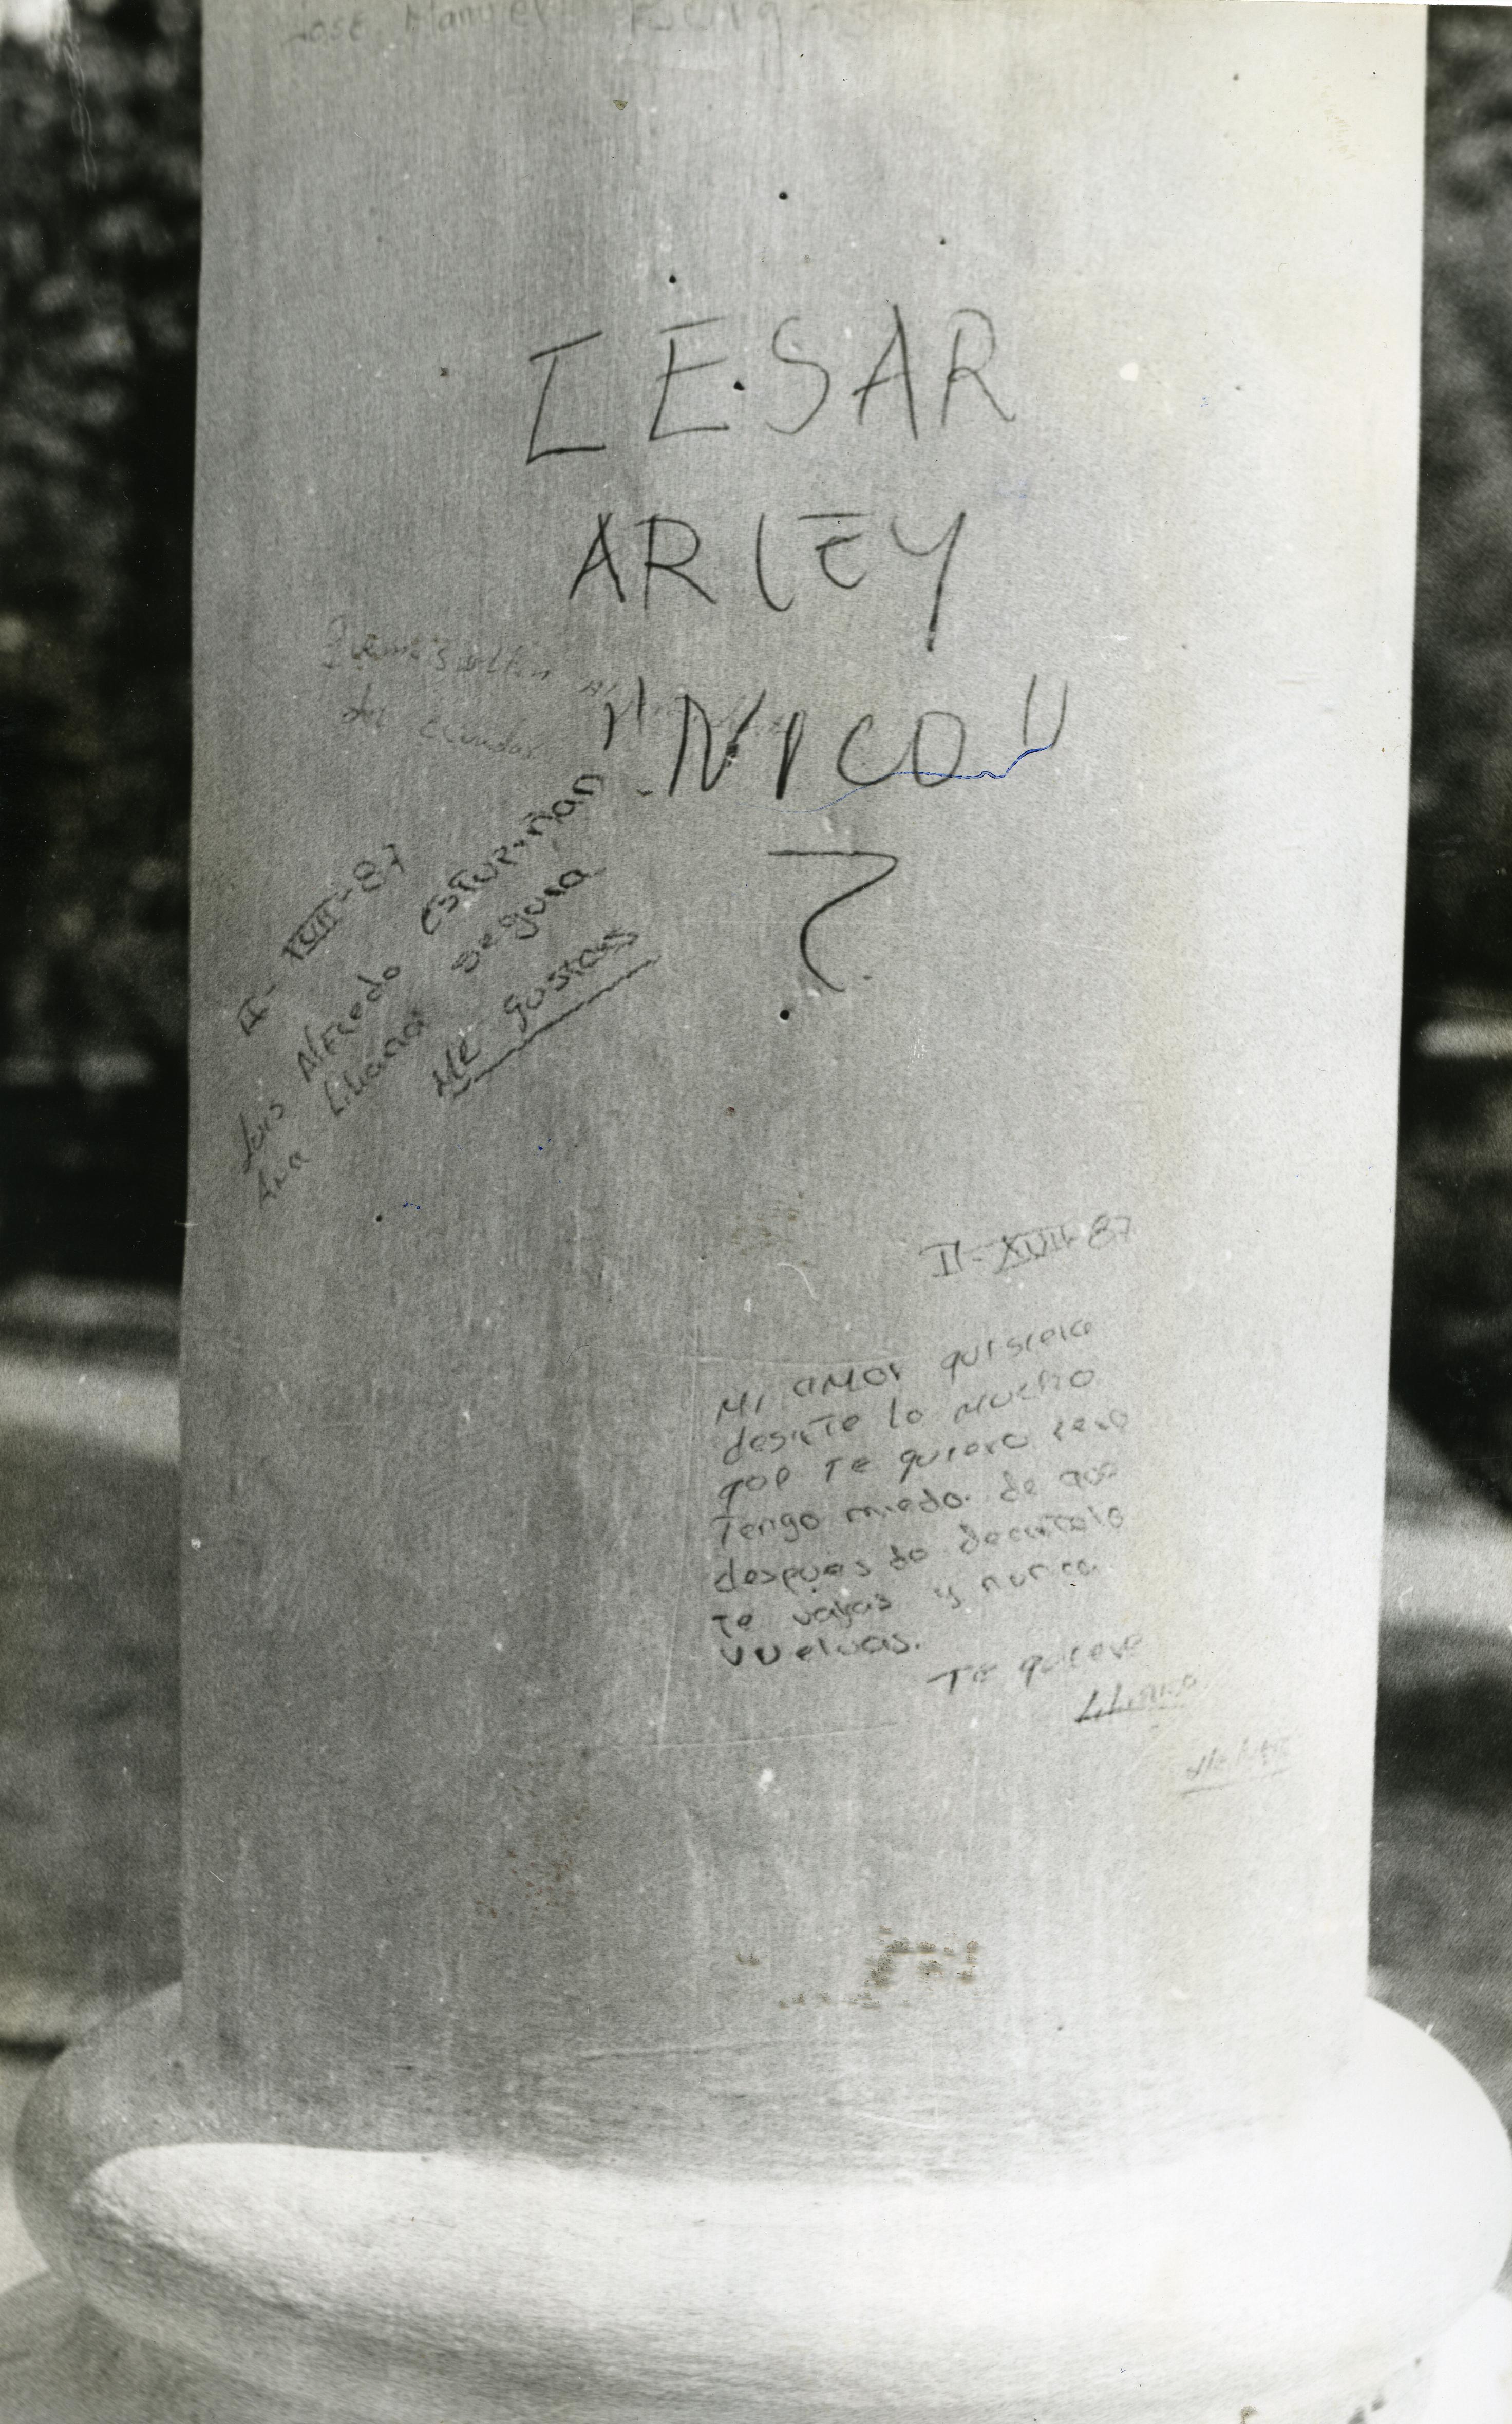 Jose Manuel
CESAR
ARLEY
"NICO"
?
II-XVIII-87
Luis Alfredo Estupiñan
Ana Liliana Segura
ME gustas
II-XVIII-87
Mi amor quisiera
desirte lo mucho
que te quiero pero
Tengo miedo de que
despues de decirtelo
te vayas y nunca
vuelvas.
TE quiere
Liliana